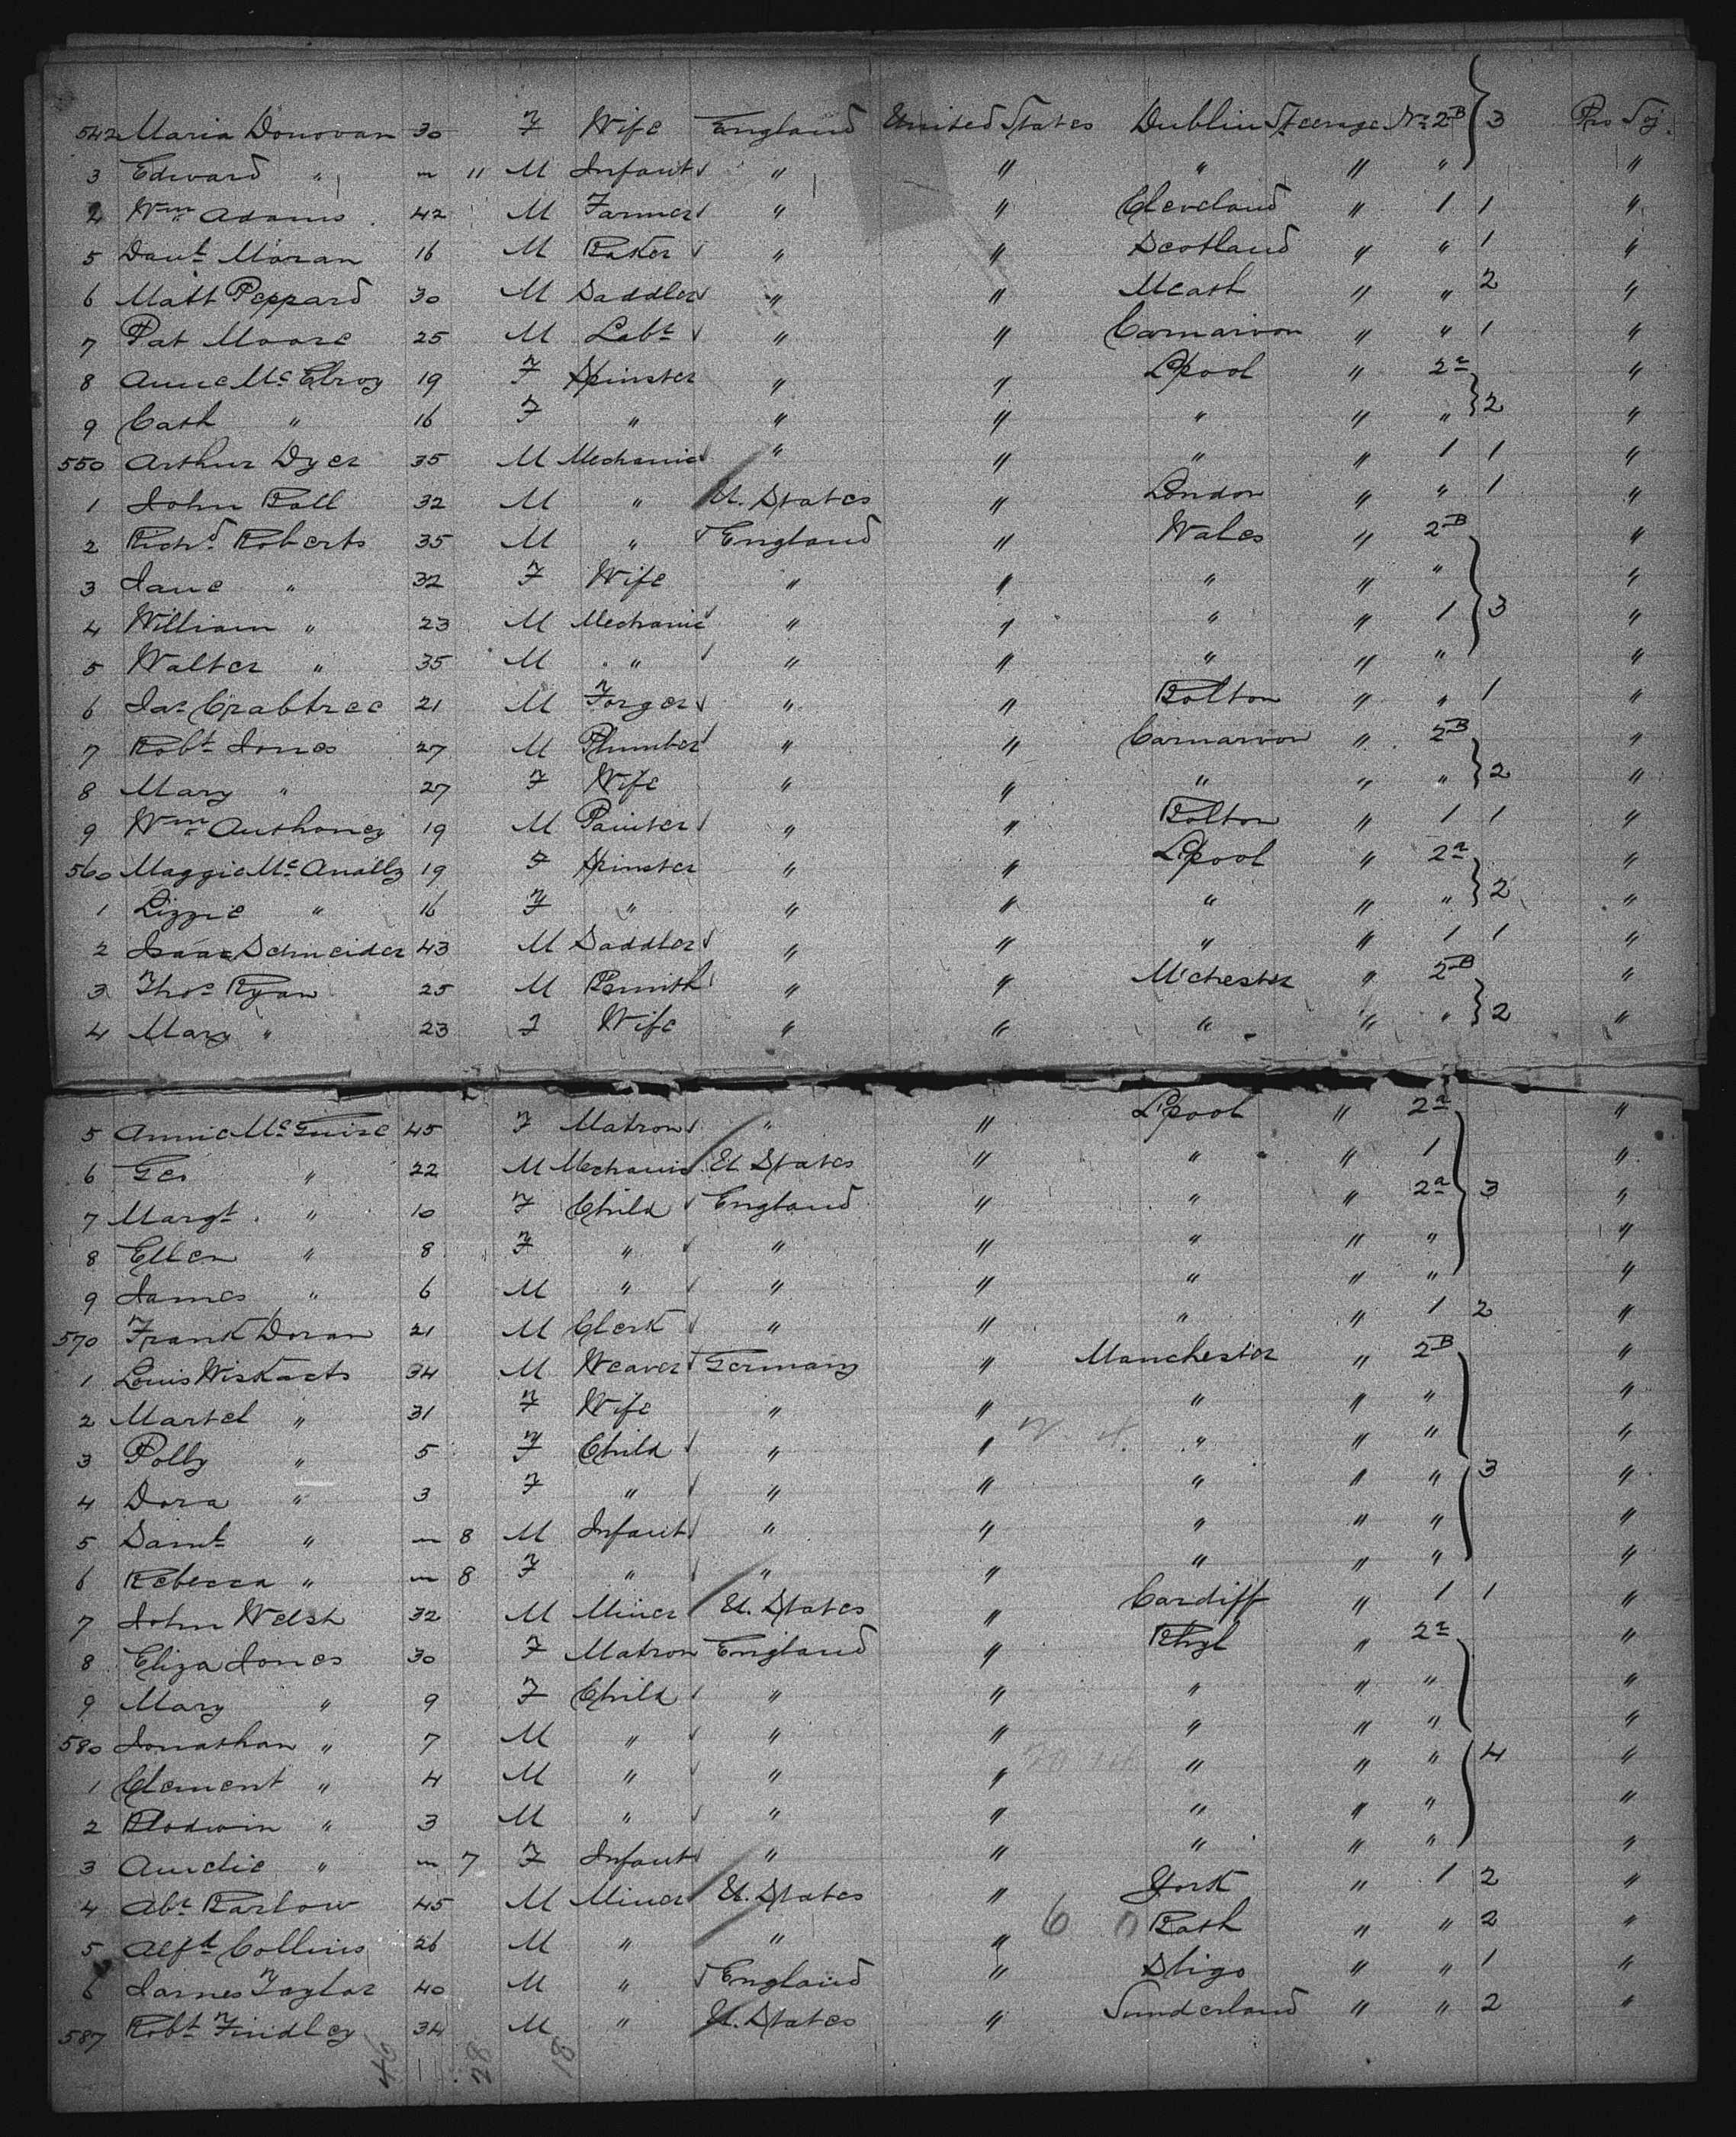 542 Maria Donovan 30 F Wife England United States Dublin Steerage No 2B 3 Pro Soj.
3 Edward " 11 M Infant " " " " " "
4 Wm Adams 42 M Farmer " " Cleveland " 1 1 "
5 Danl Moran 16 M Baker " " Scotland " " 1 "
6 Matt Peppard 30 M Saddler " " Meath " " 2 "
7 Pat Moore 25 M Labr " " Carnarvon " " 1 "
8 Anne McElroy 19 F Spinster " " Lpool " 2a "
9 Cath " 16 F " " " " " " 2 "
550 Arthur Dyer 35 M Mechanic " " " " 1 1 "
1 John Ball 32 M " U. States " London " " 1 "
2 Richd Roberts 35 M " England " Wales " 2B "
3 Jane " 32 F Wife " " " " " "
4 William " 23 M Mechanic " " " " 1 3 "
5 Walter " 35 M " " " " " " "
6 Jas Crabtree 21 M Forger " " Bolton " " 1 "
7 Robt Jones 27 M Plumber " " Carnarvon " 2B "
8 Mary " 27 F Wife " " " " " 2 "
9 Wm Anthoney 19 M Painter " " Bolton " 1 1 "
560 Maggie McAnally 19 F Spinster " " Lpool " 2a "
1 Lizzie " 16 F " " " " " " 2 "
2 Isaac Schneider 43 M Saddler " " " " 1 1 "
3 Thos Ryan 25 M Bsmith " " Mchester " 2B "
4 Mary " 23 F Wife " " " " " 2 "
5 Annie McGuire 45 F Matron " " Lpool " 2a "
6 Geo " 22 M Mechanic U. States " " " 1 "
7 Margt " 10 F Child England " " " 2a 3 "
8 Ellen " 8 F " " " " " " "
9 James " 6 M " " " " " " "
570 Frank Doran 21 M Clerk " " " " 1 2 "
1 Louis Wiskaets 34 M Weaver Germany " Manchester " 2B "
2 Martel " 31 F Wife " " " " " "
3 Polly " 5 F Child " " " " " "
4 Dora " 3 F " " " " " " 3 "
5 Saml " 8 M Infant " " " " " "
6 Rebecca " 8 F " " " " " " "
7 John Welsh 32 M Miner U. States " Cardiff " 1 1 "
8 Eliza Jones 30 F Matron England " Rhyl " 2a "
9 Mary " 9 F Child " " " " " "
580 Jonathan " 7 M " " " " " " "
1 Clement " 4 M " " " " " " 4 "
2 Blodwin " 3 M " " " " " " "
3 Aurelie " 7 F Infant " " " " " "
4 Abr Barlow 45 M Miner U. States " York " 1 2 "
5 Alfd Collins 26 M " " " 6 Bath " " 2 "
6 James Taylor 40 M " England " Sligo " " 1 "
587 Robt Findley 34 M " U. States " Sunderland " " 2 "
46 28 18